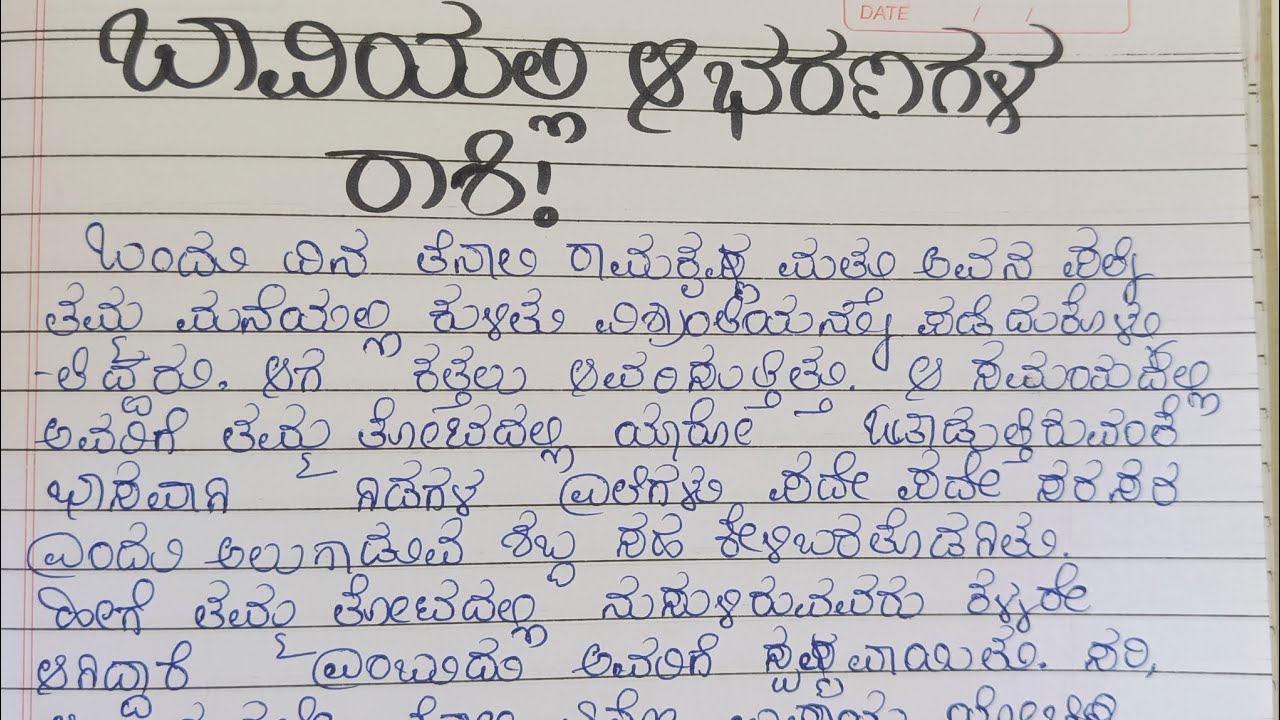 DATE / /
ಬಾವಿಯಲ್ಲಿ ಆಭರಣಗಳ
ರಾಶಿ!
ಒಂದು ದಿನ ತೆನಾಲಿ ರಾಮಕೃಷ್ಣ ಮತ್ತು ಅವನ ಪತ್ನಿ
ತಮ್ಮ ಮನೆಯಲ್ಲಿ ಕುಳಿತು ವಿಶ್ರಾಂತಿಯನ್ನು ಪಡೆದುಕೊಳ್ಳು
-ತಿದ್ದರು. ಆಗ ಕತ್ತಲು ಆವರಿಸುತ್ತಿತ್ತು. ಆ ಸಮಯದಲ್ಲಿ
ಅವರಿಗೆ ತಮ್ಮ ತೋಟದಲ್ಲಿ ಯಾರೋ ಓಡಾಡುತ್ತಿರುವಂತೆ
ಭಾಸವಾಗಿ ಗಿಡಗಳ ಎಲೆಗಳು ಪದೇ ಪದೇ ಸರಸರ
ಎಂದು ಅಲುಗಾಡುವ ಶಬ್ದ ಸಹ ಕೇಳಿಬರತೊಡಗಿತು.
ಹೀಗೆ ತಮ್ಮ ತೋಟದಲ್ಲಿ ನುಸುಳಿರುವವರು ಕಳ್ಳರೇ
ಆಗಿದ್ದಾರೆ ಎಂಬುದು ಅವರಿಗೆ ಸ್ಪಷ್ಟವಾಯಿತು. ಸರಿ,